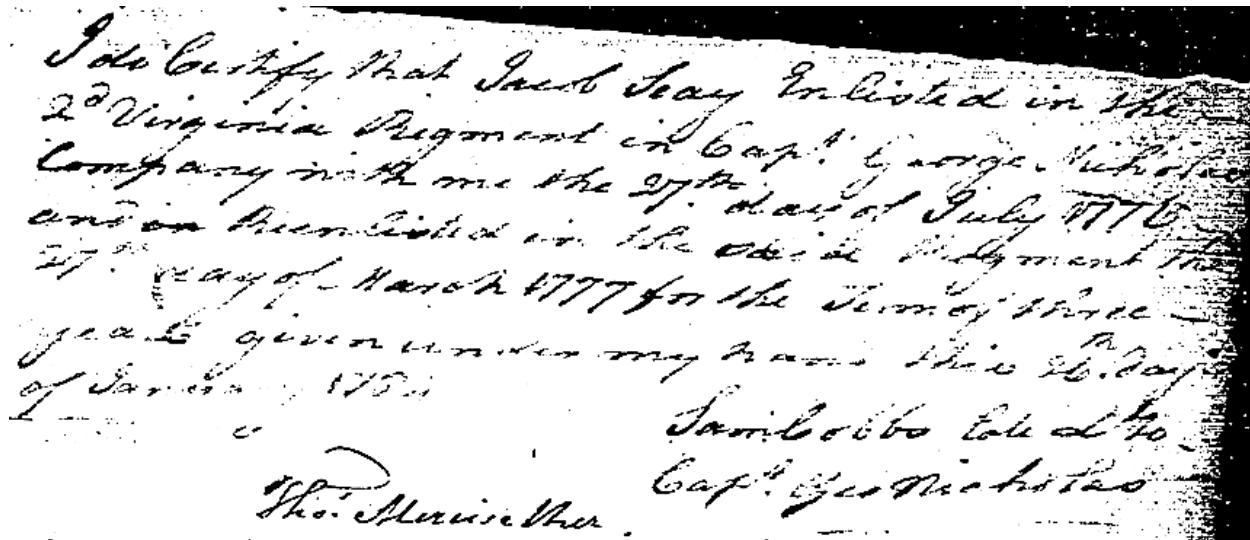 I do Certify that Jacob Seay Enlisted in the
2d Virginia Regment in Capt. George Nicholas
Company with me the 27th. day of July 1776
and Reenlisted in the Regment the
27th day of March 1777 for the Term of three
years given under my hand this day
of January
Sam Cobbs
Capt. Geo Nicholas
Thos. Meriwether